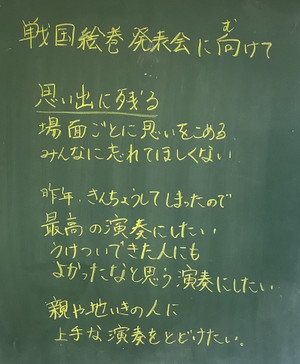 戦国絵巻発表会に向けて
む
思い出に残る
場面ごとに思いをこめる
みんなに忘れてほしくない
昨年、きんちょうしてしまったので
最高の演奏にしたい
うけついできた人にも
よかったなと思う演奏にしたい
親や地いきの人に
上手な演奏をとどけたい。